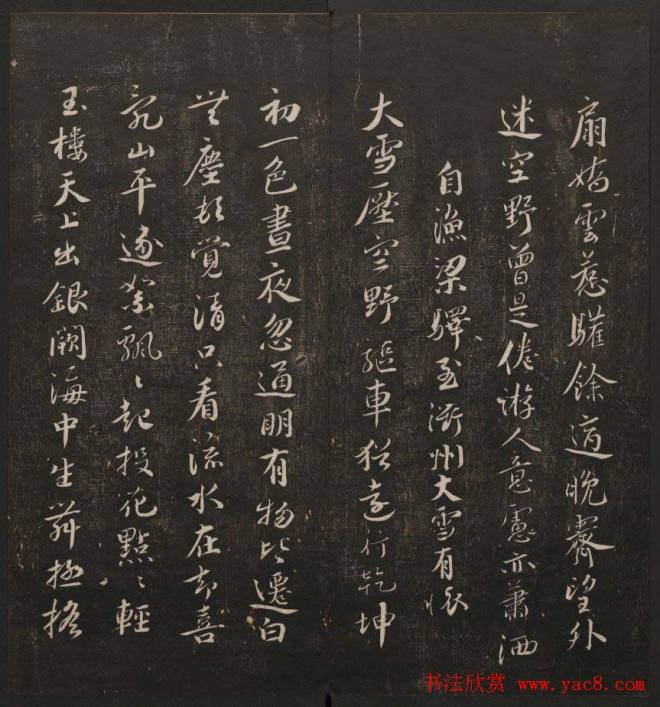 扇嬌雲惹驩餘適晚霽望外
迷空野曾是倦游人意慮亦蕭洒
自漁梁驛至衢州大雪有懷
大雪壓空野驅車猶遠行乾坤
初一色晝夜忽通明有物皆遷白
無塵頓覺清只看流水在却喜
亂山平逐絮飄〻起投花點〻輕
玉樓天上出銀闕海中生舞極搖
书法欣赏 www.yac8.com